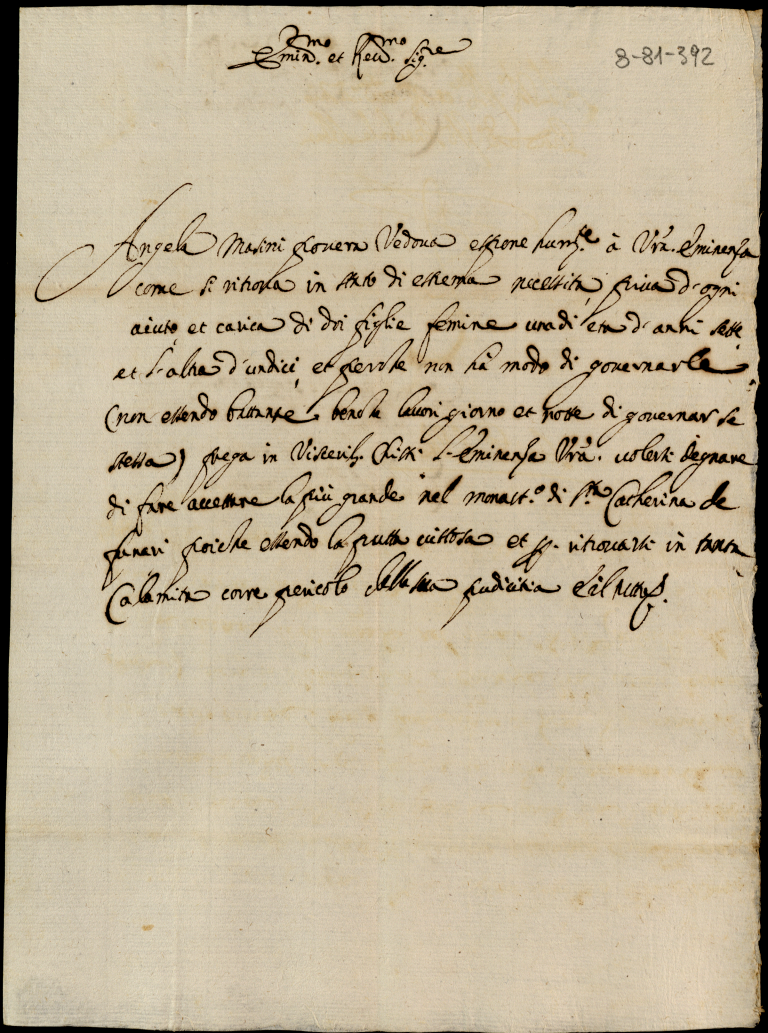 Emin.mo et Reu.mo Sig.re
8-81-392
Angela Masini pouera Vedoua espone hum.te à Vra. Eminensa
come si ritroua in stato di estrema necessità, priua d'ogni
aiuto et carica di doi figlie femine una di età d'anni sette
et l'altra d'undici, et perche non hà modo di gouernarle
(non essendo bastante, benche lauori giorno et notte di gouernar se
stessa) prega in Visceri. Christi l'Eminensa Vra. uolersi degnare
di fare accettare la più grande nel monast.o di S.ta Catherina de
funari poiche essendo la putta uistosa et p. ritrouarsi in tanta
Calamità corre pericolo della sua pudicitia